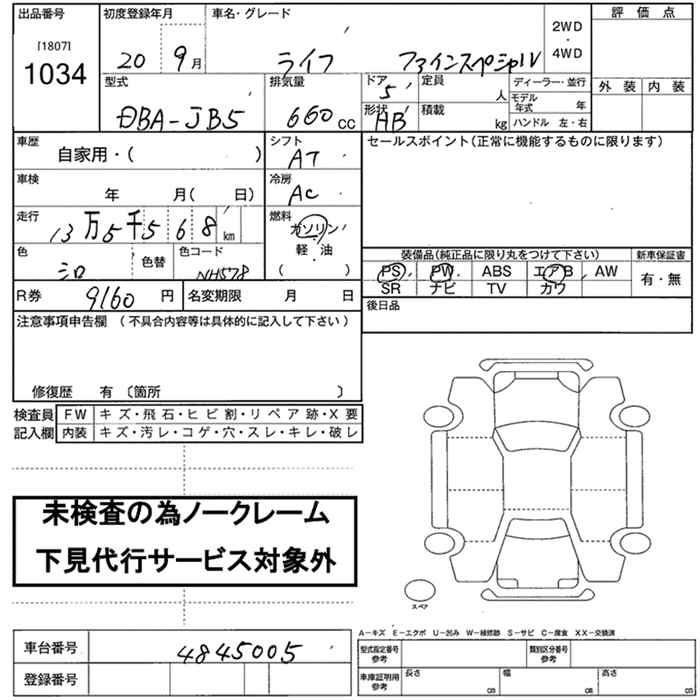 出品番号
初度登録年月
車名・グレード
2WD
・
4WD
評価点
[1807]
1034
20 9月
ライフ ファインスペシャル
外装 内装
型式
DBA-JB5
排気量
660cc
ドア
5
形状
HB
定員
人
積載
kg
ディーラー・並行
モデル
年式 年
ハンドル 左・右
車歴
自家用・( )
シフト
AT
セールスポイント(正常に機能するものに限ります)
車検
年 月( 日)
冷房
AC
走行
13万5千568km
燃料
ガソリン
軽・油
( )
色
シロ
色替
色コード
NH578
装備品(純正品に限り丸をつけて下さい)
新車保証書
PS PW ABS エアB AW
SR ナビ TV カワ
有・無
R券 9160円
名変期限 月 日
後日品
注意事項申告欄 (不具合内容等は具体的に記入して下さい)
修復歴 有 〔箇所 〕
検査員
記入欄
FW キズ・飛石・ヒビ割・リペア跡・X要
内装 キズ・汚レ・コゲ・穴・スレ・キレ・破レ
未検査の為ノークレーム
下見代行サービス対象外
スペア
A-キズ E-エクボ U-凹み W-補修跡 S-サビ C-腐食 XX-交換済
車台番号 4845005
登録番号
型式指定番号
参考
類別区分番号
参考
車庫証明用
参考
長さ cm
幅 cm
高さ cm